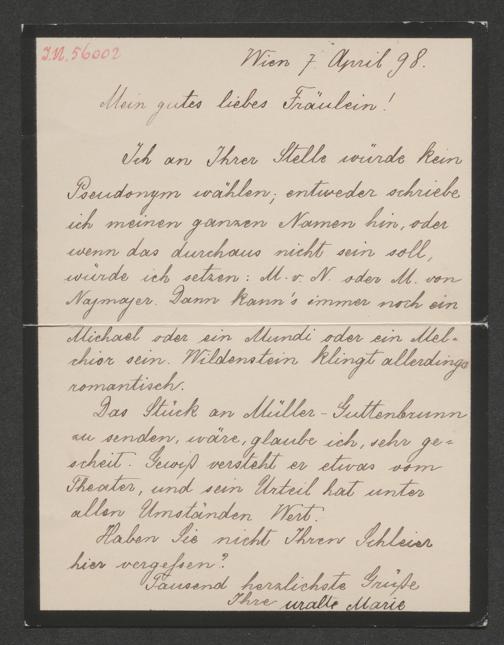 J.N. 56002
Wien 7. April 98.
Mein gutes liebes Fräulein!
Ich an Ihrer Stelle würde kein
Pseudonym wählen; entweder schriebe
ich meinen ganzen Namen hin, oder
wenn das durchaus nicht sein soll,
würde ich setzen: M. v. N. oder M. von
Najmajer. Dann kann's immer noch ein
Michael oder ein Mundi oder ein Mel-
chior sein. Wildenstein klingt allerdings
romantisch.
Das Stück an Müller-Guttenbrunn
zu senden, wäre, glaube ich, sehr ge-
scheit. Gewiß versteht er etwas vom
Theater, und sein Urteil hat unter
allen Umständen Wert.
Haben Sie nicht Ihren Schleier
hier vergessen?
Tausend herzlichste Grüße
Ihre uralte Marie